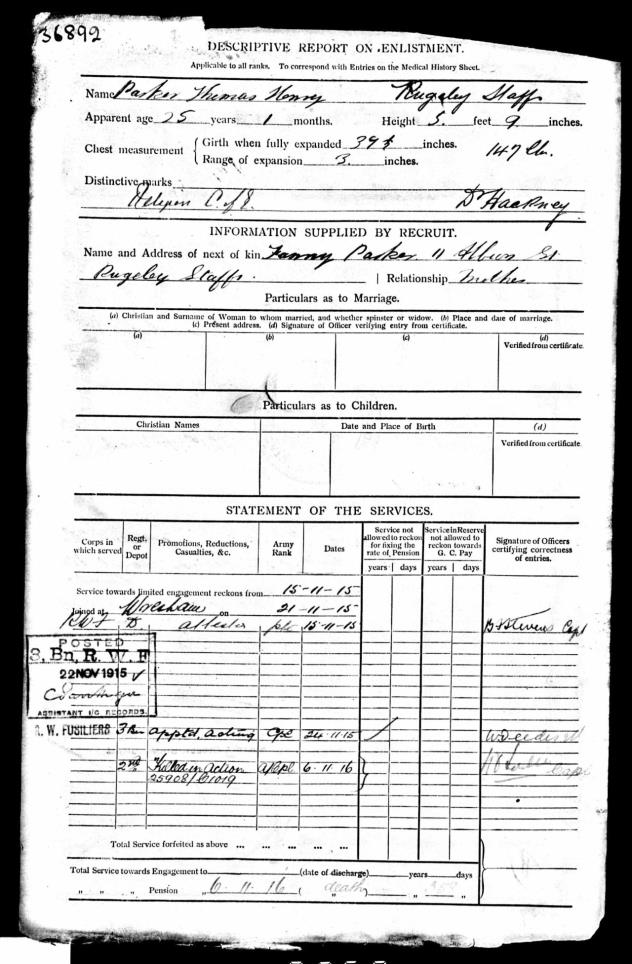 36892
DESCRIPTIVE REPORT ON ENLISTMENT.
Applicable to all ranks. To correspond with Entries on the Medical History Sheet.
Name Parker Thomas Henry Rugeley Staffs
Apparent age 25 years 1 months. Height 5 feet 9 inches.
Chest measurement { Girth when fully expanded 39 inches.
Range of expansion 3 inches. 147 lb.
Distinctive marks
Religion C of E. Dr Hackney
INFORMATION SUPPLIED BY RECRUIT.
Name and Address of next of kin Fanny Parker 11 Albion St
Rugeley Staffs. | Relationship Mother
Particulars as to Marriage.
(a) Christian and Surname of Woman to whom married, and whether spinster or widow. (b) Place and date of marriage.
(c) Present address. (d) Signature of Officer verifying entry from certificate.
(a) (b) (c) (d)
Verified from certificate.
Particulars as to Children.
Christian Names Date and Place of Birth (d)
Verified from certificate
STATEMENT OF THE SERVICES.
Corps in which served Regt. or Depot Promotions, Reductions, Casualties, &c. Army Rank Dates Service not allowed to reckon for fixing the rate of Pension Service in Reserve not allowed to reckon towards G. C. Pay Signature of Officers certifying correctness of entries.
years days years days
Service towards limited engagement reckons from 15-11-15
Joined at Wrexham on 21-11-15
RWF D. attested pte 15-11-15 B Stevens Capt
POSTED
3, Bn, R. W. F
22 NOV 1915
ASSISTANT I/C RECORDS
R. W. FUSILIERS 3 Bn Apptd, acting Cpl 24.11.15
2nd Killed in Action A/Cpl 6.11.16 Capt
25908/B1019
Total Service forfeited as above ... ... ... ... ...
Total Service towards Engagement to (date of discharge) years days
" " " Pension " 6.11.16 ( death ) " "